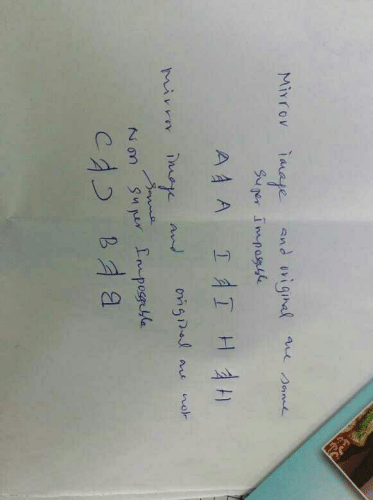 Mirror image and original are same
Super Imposable
A ≠ A I ≠ I H ≠ H
Mirror image and original are not
same
Non Super Imposable
C ≠ Ɔ B ≠ ᗺ